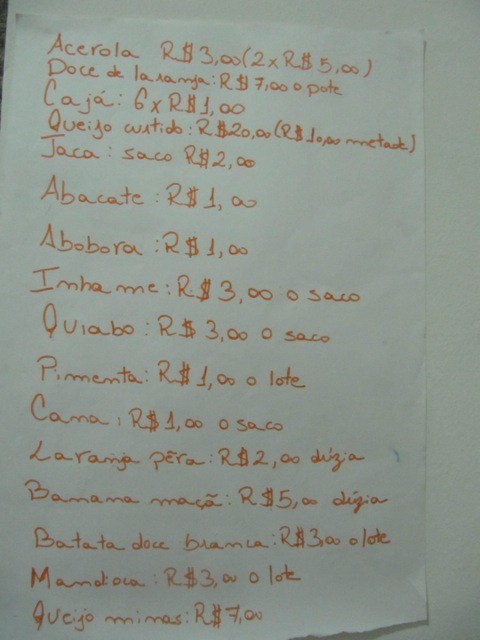 Acerola R$ 3,00 (2 x R$ 5,00)
Doce de laranja: R$ 7,00 o pote
Cajá: 6 x R$ 1,00
Queijo curtido: R$20,00 (R$ 10,00 metade)
Jaca: saco R$ 2,00
Abacate: R$ 1,00
Abobora: R$ 1,00
Inhame: R$ 3,00 o saco
Quiabo: R$ 3,00 o saco
Pimenta: R$ 1,00 o lote
Cana: R$ 1,00 o saco
Laranja pêra: R$ 2,00 dúzia
Banana maçã: R$ 5,00 dúzia
Batata doce branca: R$ 3,00 o lote
Mandioca: R$ 3,00 o lote
Queijo minas: R$ 7,00